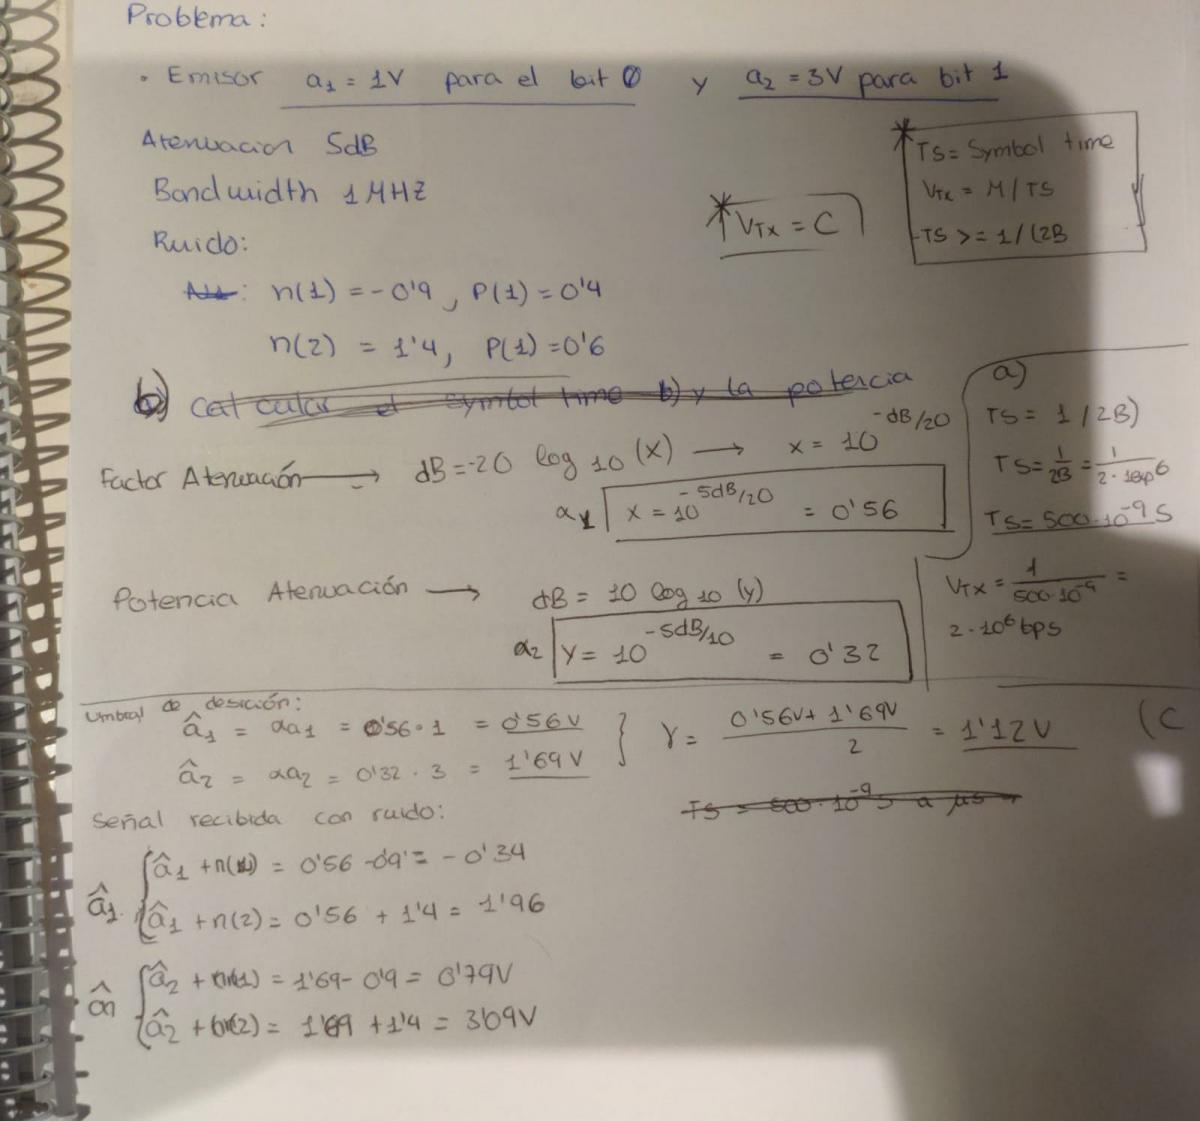 Problema:
• Emisor a₁ = 1V para el bit 0 y a₂ = 3V para bit 1
Atenuacion 5dB
Bandwidth 1 MHZ
Ruido:
n(1) = -0'9, P(1) = 0'4
n(2) = 1'4, P(1) = 0'6
* V_TX = C
* TS = Symbol time
V_TX = M / TS
TS >= 1/(2B
b) calcular el symbol time b) y la potencia
Factor Atenuación → dB = -20 log₁₀ (x) → x = 10^-dB/20
α₁ x = 10^-5dB/20 = 0'56
a)
TS = 1 / 2B)
TS = 1/2B = 1/2·1exp6
TS = 500·10⁻⁹ S
V_TX = 1/500·10⁻⁹ =
2·10⁶ bps
Potencia Atenuación → dB = 10 log₁₀ (y)
α₂ y = 10^-5dB/10 = 0'32
Umbral de desición:
â₁ = αa₁ = 0'56 · 1 = 0'56 V
â₂ = αa₂ = 0'32 · 3 = 1'69 V
} γ = 0'56V + 1'69V / 2 = 1'12V
(C
TS = 500·10⁻⁹ S a µs
Señal recibida con ruido:
â₁ { â₁ + n(1) = 0'56 - 0'9 = -0'34
â₁ + n(2) = 0'56 + 1'4 = 1'96
ân { â₂ + n(1) = 1'69 - 0'9 = 0'79V
â₂ + n(2) = 1'69 + 1'4 = 3'09V